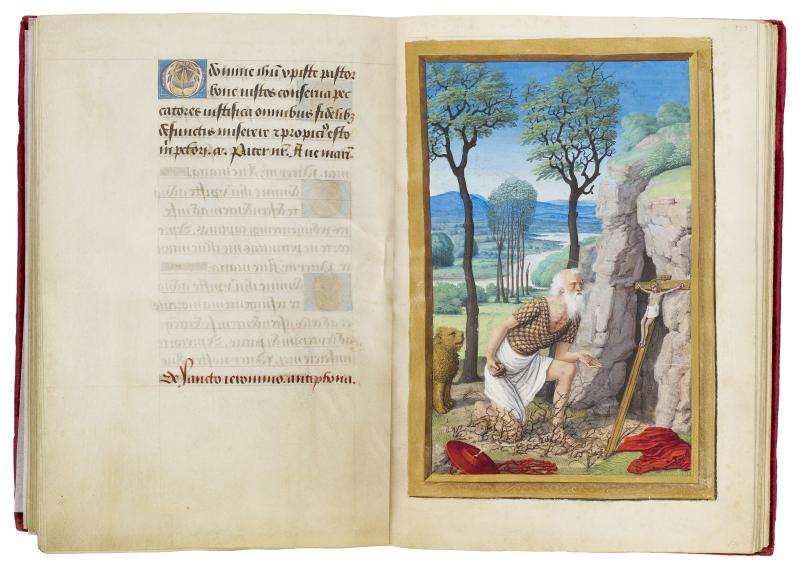 O domine ihū xpiste pastor
bone iustos conserua pec
catores iustifica omnibus fidelibꝫ
defunctis miserere ⁊ propiciꝰ esto
Pater nr̄. Aue mari.
De sancto ieronimo. antiphona.